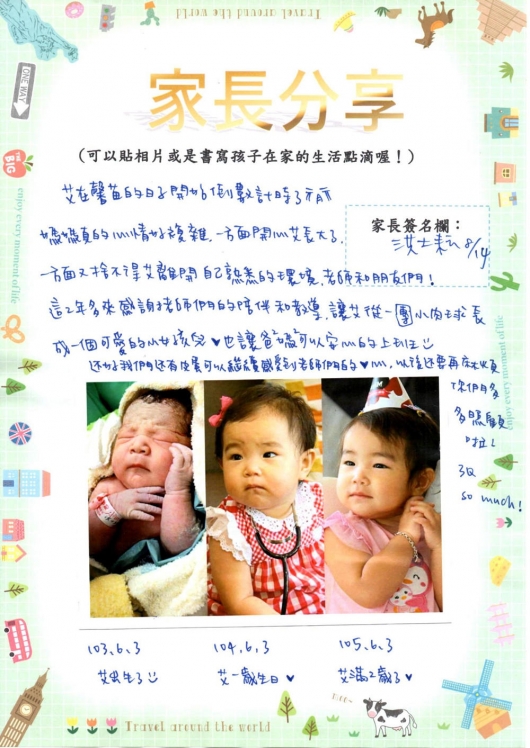 Travel around the world
ONE WAY
THE BIG
家長分享
(可以貼相片或是書寫孩子在家的生活點滴喔！)
艾在馨苗的日子開始倒數計時了
家長簽名欄：
8/14
媽媽真的心情好複雜，一方面開心艾長大了，
一方面又捨不得艾離開自己熟悉的環境，老師和朋友們！
這2年多來感謝老師們的陪伴和教導，讓艾從一團小肉球長
成一個可愛的小女孩兒♥也讓爸媽可以安心的上班
還好我們還有成長可以繼續感受到老師們的♥心，以後還要再
你們多
多照顧
啦！
3Q
so much!
enjoy every moment of life
enjoy every moment of life
103.6.3
104.6.3
105.6.3
艾出生了
艾一歲生日♥
艾滿2歲了♥
Moo~
Travel around the world